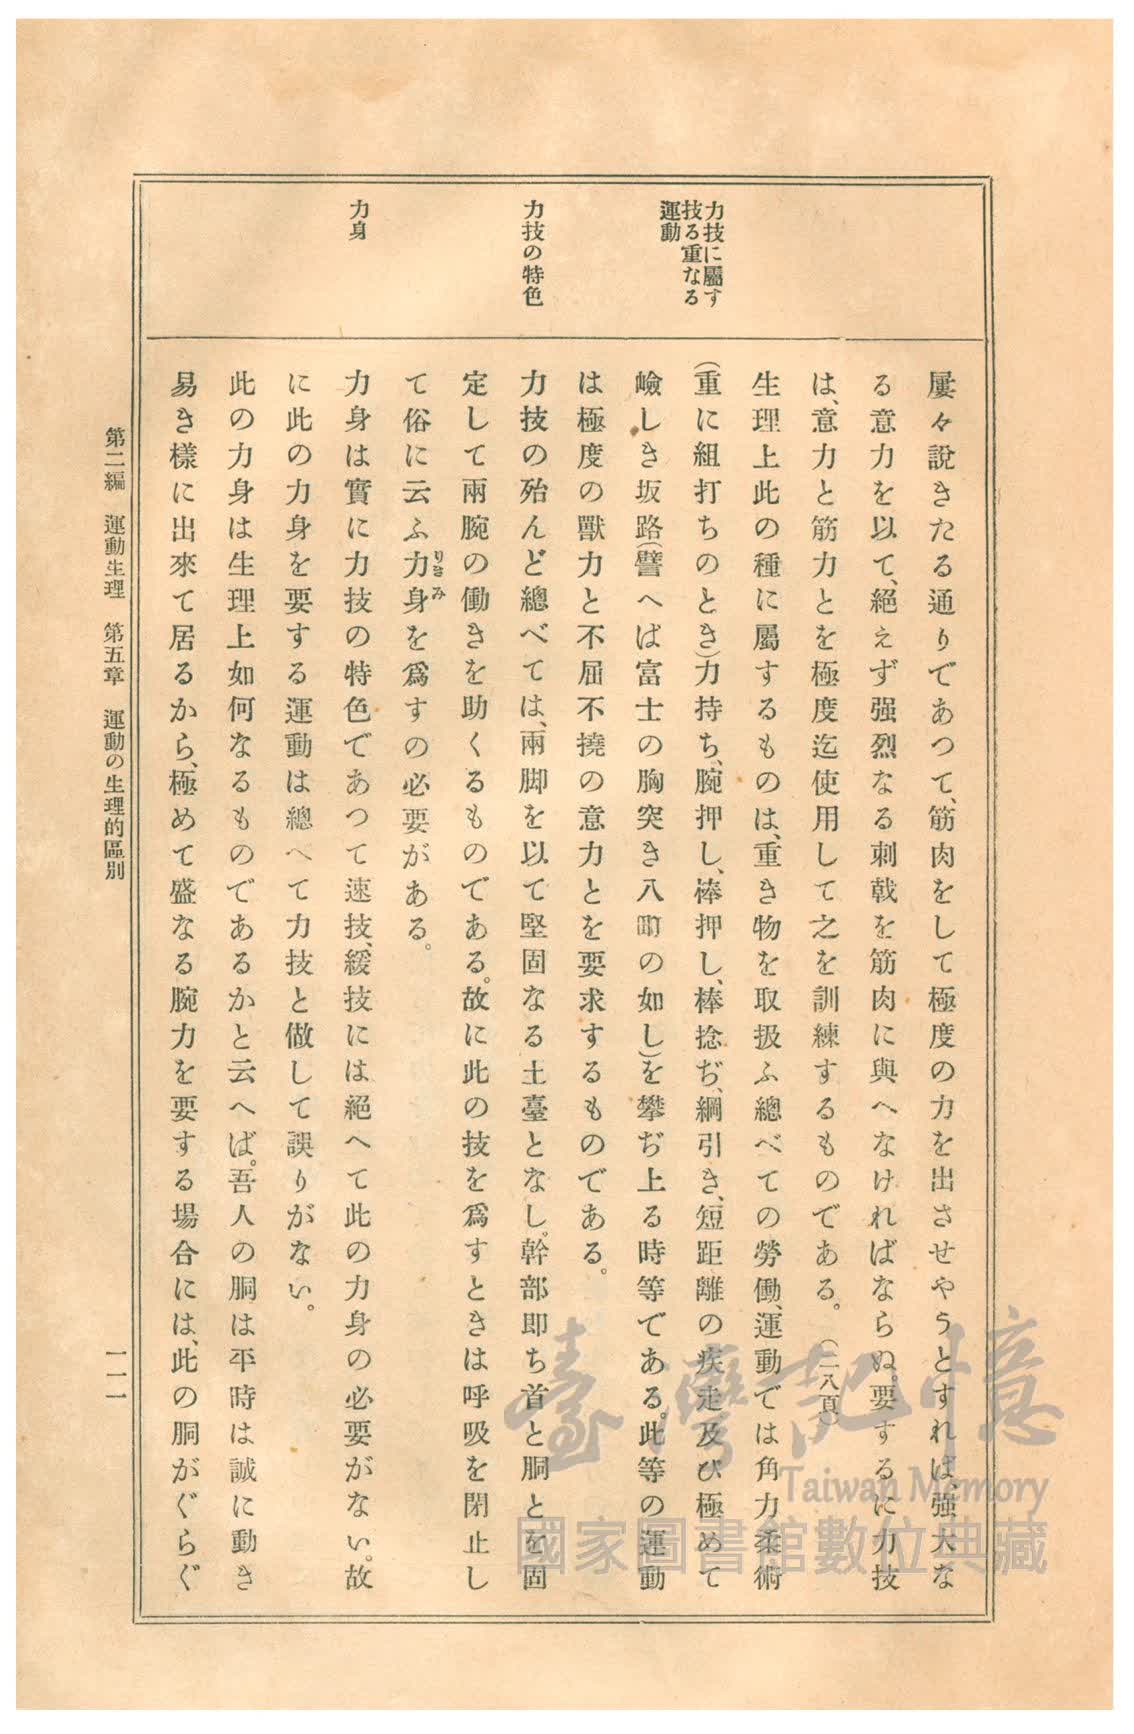 力技に屬す
技る重なる
運動
力技の特色
力身
屢々説きたる通りであつて、筋肉をして極度の力を出させやうとすれば、强大な
る意力を以て、絕えず强烈なる刺戟を筋肉に與へなければならぬ。要するに力技
は、意力と筋力とを極度迄使用して之を訓練するものである。(二八頁)
生理上此の種に屬するものは、重き物を取扱ふ總べての勞働、運動では角力柔術
(重に組打ちのとき)力持ち、腕押し、棒押し、棒捻ぢ、綱引き、短距離の疾走及び極めて
嶮しき坂路(譬へば富士の胸突き八町の如し)を攀ぢ上る時等である。此等の運動
は極度の獸力と不屈不撓の意力とを要求するものである。
力技の殆んど總べては、兩脚を以て堅固なる土臺となし。幹部即ち首と胴とを固
定して兩腕の働きを助くるものである。故に此の技を爲すときは呼吸を閉止し
て俗に云ふ力身りきみを爲すの必要がある。
力身は實に力技の特色であつて速技、緩技には絕へて此の力身の必要がない。故
に此の力身を要する運動は總へて力技と做して誤りがない。
此の力身は生理上如何なるものであるかと云へば。吾人の胴は平時は誠に動き
易き樣に出來て居るから、極めて盛なる腕力を要する場合には、此の胴がぐらぐ
第二編 運動生理 第五章 運動の生理的區別
一一一
臺灣記憶
Taiwan Memory
國家圖書館數位典藏